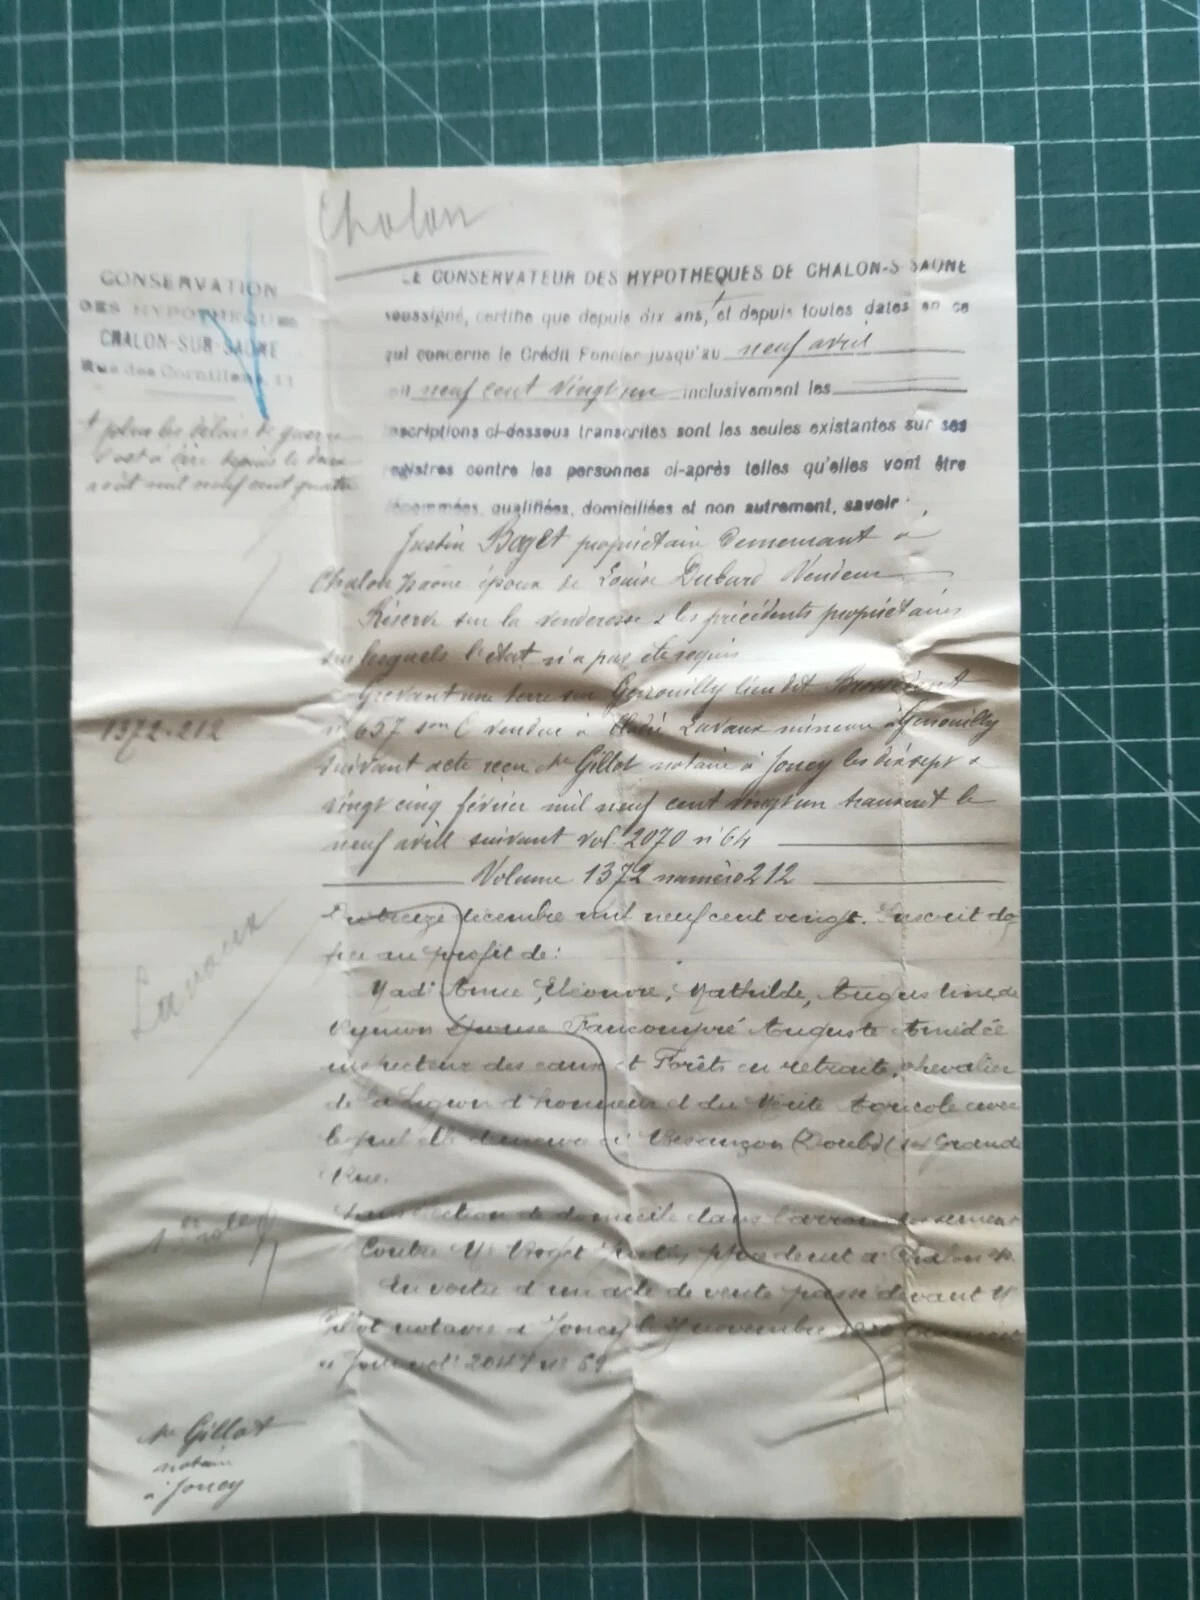 Chalon
CONSERVATION
DES HYPOTHEQUES
CHALON-SUR-SAONE
Rue des Cornillons, 11
LE CONSERVATEUR DES HYPOTHEQUES DE CHALON-S-SAONE
soussigné, certifie que depuis dix ans, et depuis toutes dates en ce
qui concerne le Crédit Foncier jusqu'au neuf avril
neuf cent vingt un inclusivement les
inscriptions ci-dessous transcrites sont les seules existantes sur ses
registres contre les personnes ci-après telles qu'elles vont être
dénommées, qualifiées, domiciliées et non autrement, savoir :
+ plus les délais de guerre
c'est à dire depuis le deux
août mil neuf cent quatre
Justin propriétaire demeurant à
Chalon s/saône époux de Louise Dubard Vendeur
Réserve sur la venderesse & les précédents propriétaires
sur lesquels l'état n'a pas été requis
Grevant une terre sur Genouilly lieu dit
n° 657 son C vendue à Lavaux mineur à Genouilly
suivant acte reçu Me Gillot notaire à Joncy les dix sept &
vingt cinq février mil neuf cent vingt un transcrit le
neuf avril suivant vol. 2070 n° 64
1372.212
Volume 1372 numéro 212
Du treize décembre mil neuf cent vingt. Inscrit d'of
fice au profit de :
Lavaux
Mad° Anne, Eléonore, Mathilde, Augustine de
épouse Faucompré Auguste Amédée
inspecteur des eaux et Forêts en retraite, chevalier
de la Légion d'honneur et du Mérite Agricole avec
lequel elle demeure à Besançon (Doubs) Grande
Rue.
1er rôle
élection de domicile dans l'arrondissement
Contre Mr ppre demt à Chalon s/s.
En vertu d'un acte de vente passé devant Me
Gillot notaire à Joncy le novembre 1920 transcrit
vol. n° 69.
Me Gillot
notaire
à Joncy